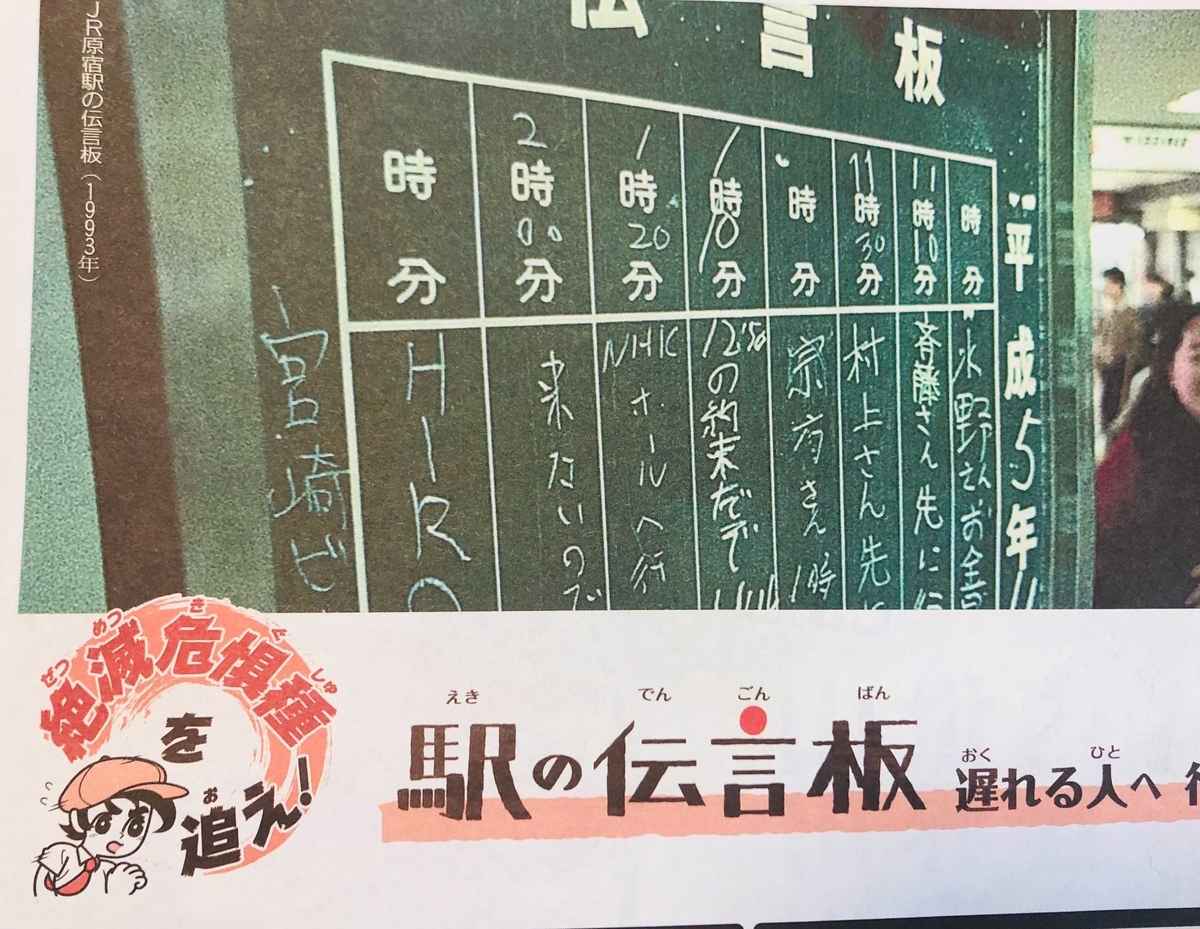 JR原宿駅の伝言板（1993年）
伝言板
平成5年11
時 分
水野さんお
11時10分
斉藤さん先に行
11時30分
村上さん先に
時 分
さん 1時
1時10分
12'50の約束だで
1時20分
NHKホールへ行
2時00分
来たいので
時 分
HIRO
宮崎ビ
ぜつ めつ き ぐ しゅ
絶滅危惧種
を
お
追え!
えき でん ごん ばん
駅の伝言板
おく ひと
遅れる人へ